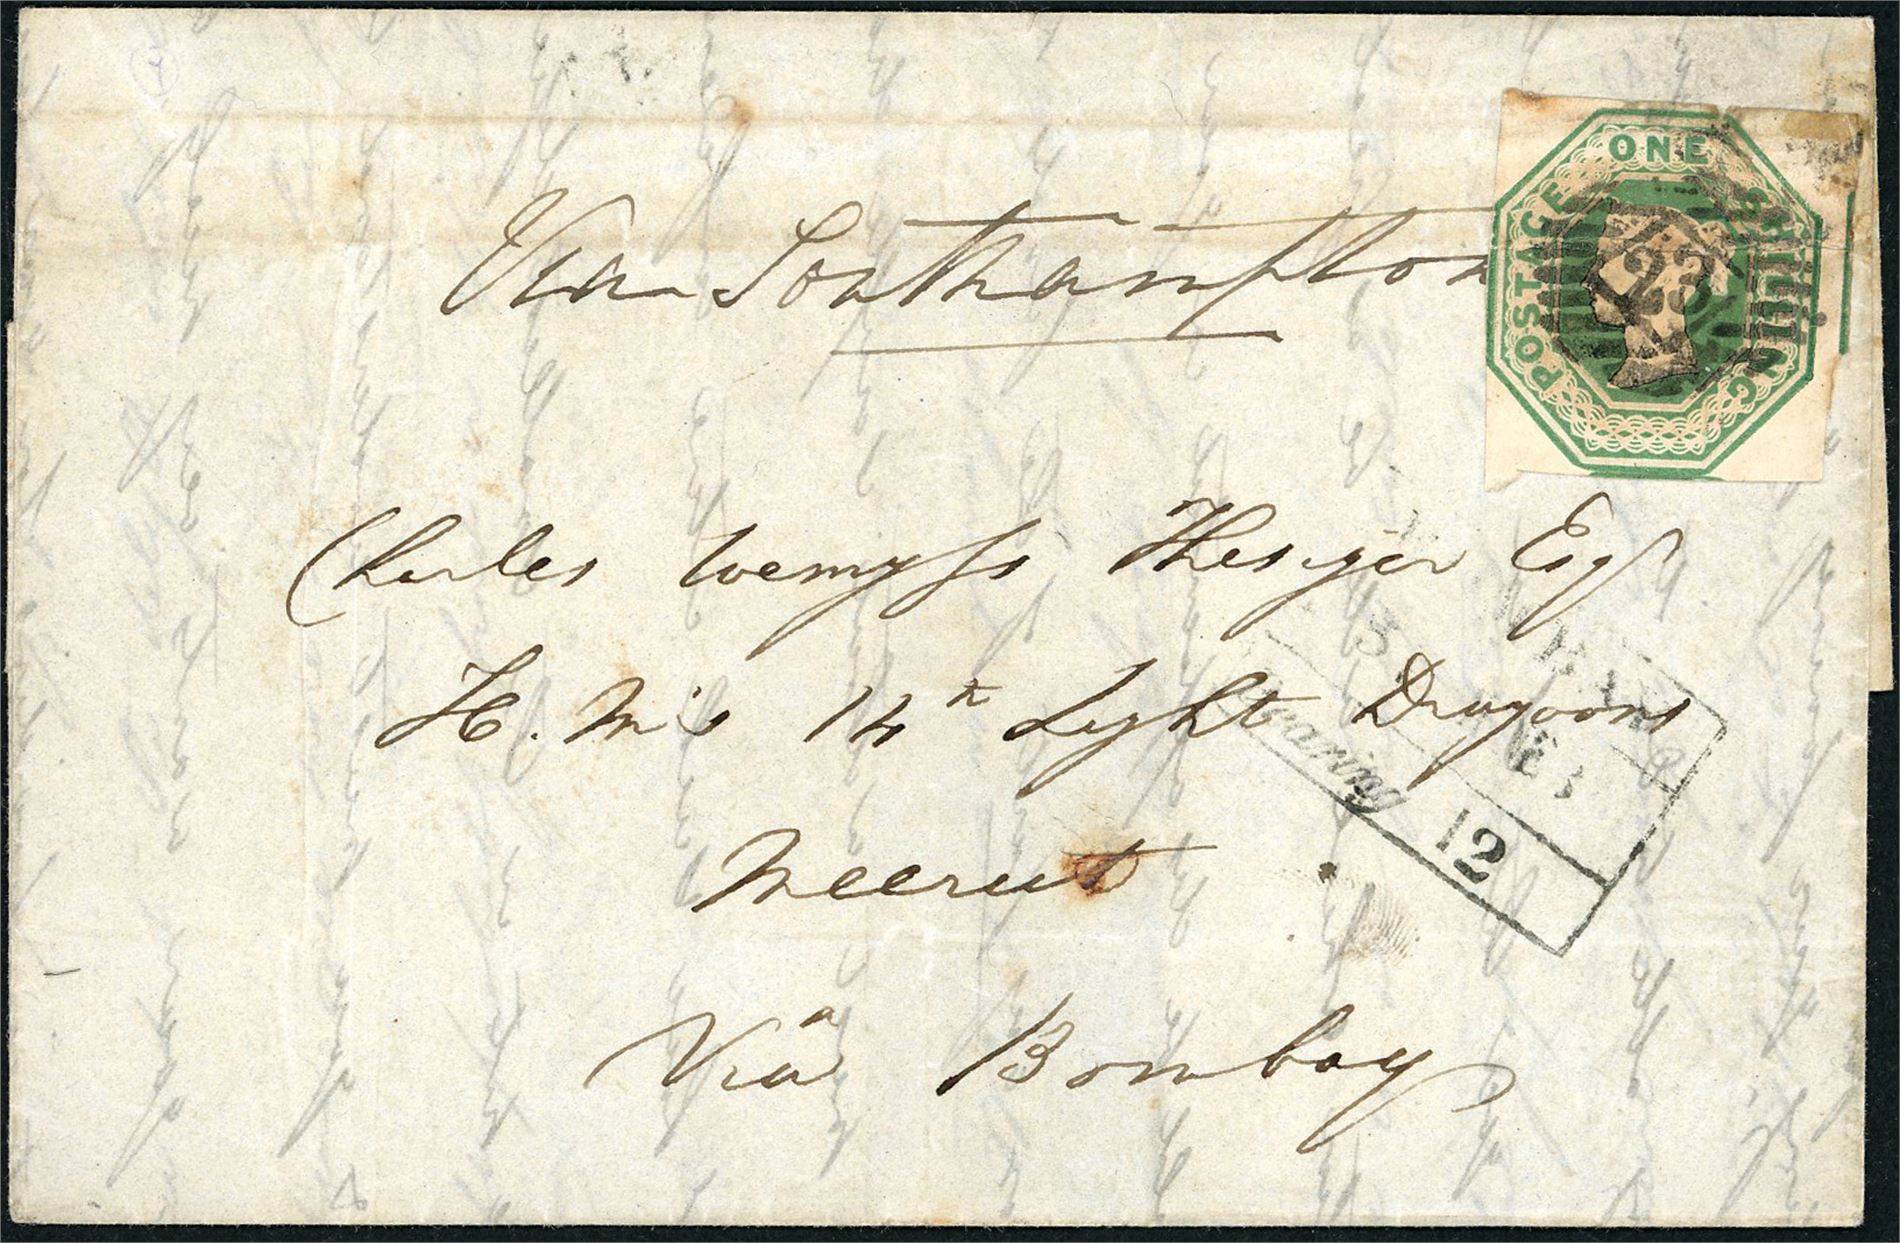 ONE
POSTAGE
SHILLING
23
Via Southampton
Charles Wemyss Thesiger Esqr
H. M's 14th Light Dragoons
Meerut
Via Bombay
Bearing
12